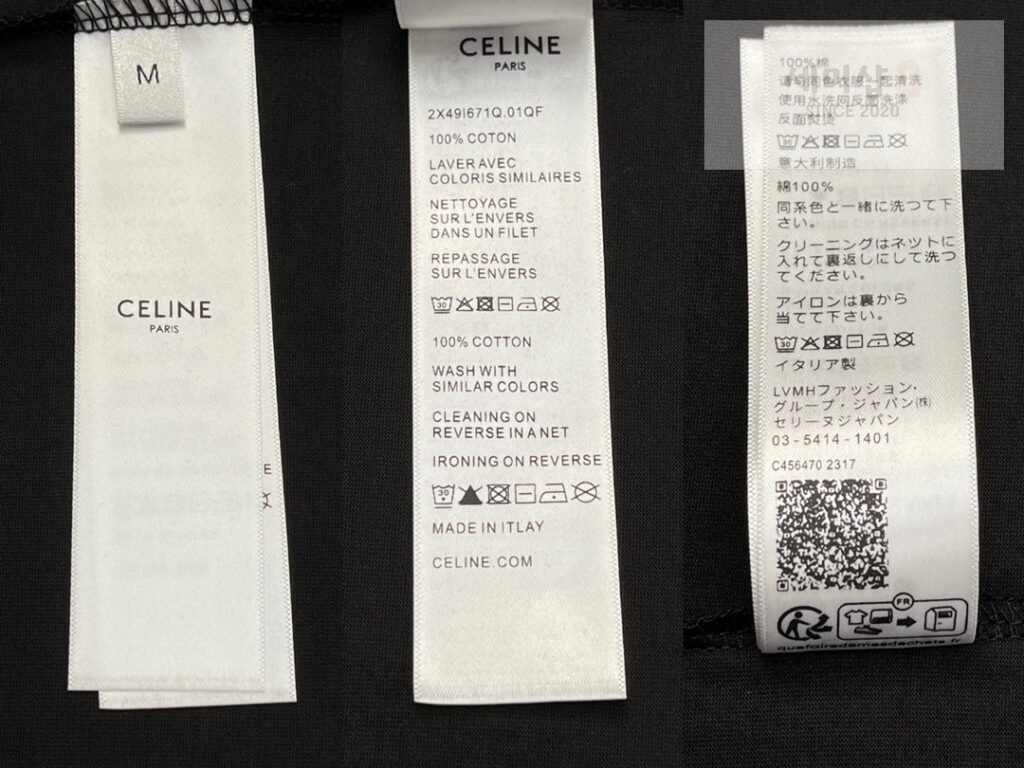 M
CELINE
PARIS
E
CELINE
PARIS
2X49I671Q.01QF
100% COTON
LAVER AVEC
COLORIS SIMILAIRES
NETTOYAGE
SUR L'ENVERS
DANS UN FILET
REPASSAGE
SUR L'ENVERS
30
100% COTTON
WASH WITH
SIMILAR COLORS
CLEANING ON
REVERSE IN A NET
IRONING ON REVERSE
30
MADE IN ITLAY
CELINE.COM
SINCE 2020
100%棉
请与同色衣服一起清洗
使用水洗网反面洗涤
反面熨烫
30
意大利制造
綿100%
同系色と一緒に洗つて下
さい。
クリーニングはネツトに
入れて裏返しにして洗つ
てください。
アイロンは裏から
当てて下さい。
30
イタリア製
LVMHファッション・
グループ・ジャパン㈱
セリーヌジャパン
03-5414-1401
C456470 2317
FR
quefairedemesdechets.fr